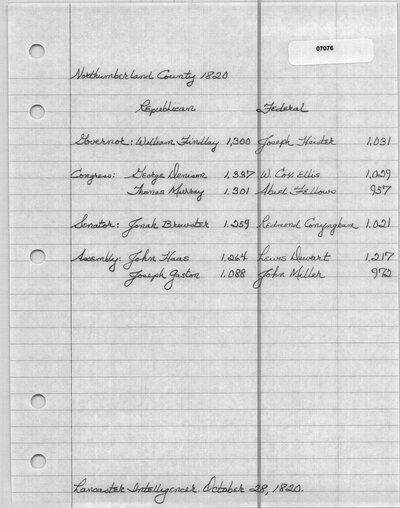 07076
Northumberland County 1820
Republican Federal
Governor: William Findlay 1,300 Joseph Heister 1,031
Congress: George Denison 1,337 W. Cox Ellis 1,029
Thomas Murray 1,301 Abiel Fellows 957
Senator: Jonah Brewster 1,259 Redmond Conyngham 1,021
Assembly: John Haas 1,264 Lewis Dewart 1,217
Joseph Gaston 1,088 John Miller 972
Lancaster Intelligencer October 28, 1820.